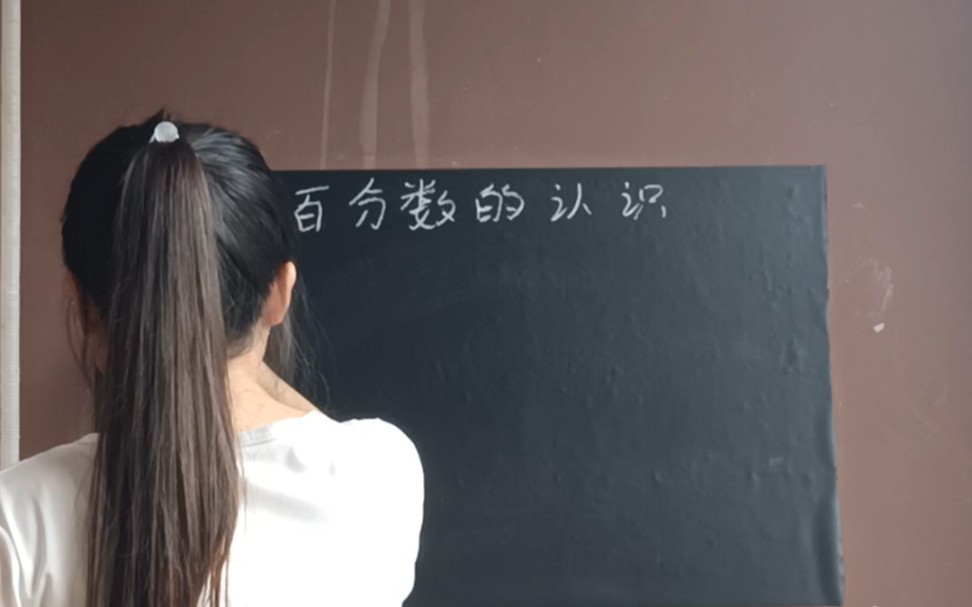 百分数的认识